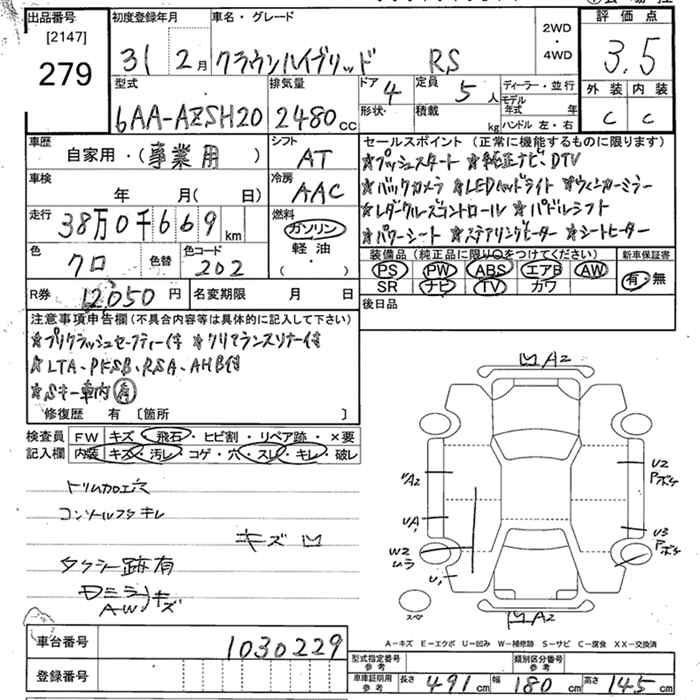 出品番号 初度登録年月 車名・グレード 2WD・4WD 評価点
[2147]
279 31 2月 クラウンハイブリッド RS 3.5
型式 排気量 ドア 4 定員 5人 ディーラー・並行 外装 内装
6AA-AZSH20 2480cc 形状 積載 kg モデル年式 年 ハンドル 左・右 C C
車歴 自家用・(事業用) シフト AT セールスポイント (正常に機能するものに限ります)
☆プッシュスタート ☆純正ナビ、DTV
車検 年 月(日) 冷房 AAC ☆バックカメラ ☆LEDヘッドライト ☆ウィンカーミラー
走行 38万0千669km 燃料 ガソリン・軽・油・( ) ☆レダークルーズコントロール ☆パドルシフト
☆パワーシート ☆ステアリングヒーター ☆シートヒーター
色 クロ 色替 色コード 202 装備品 (純正品に限り○をつけてください) 新車保証書
PS PW ABS エアB AW 有・無
SR ナビ TV カワ
R券 12,050円 名変期限 月 日 後日品
注意事項申告欄 (不具合内容等は具体的に記入して下さい)
☆プリクラッシュセーフティー付 ☆クリアランスソナー付
☆LTA、PKSB、RSA、AHB付
☆Sキー車内有
修復歴 有 [箇所 ]
検査員 FW キズ・飛石・ヒビ割・リペア跡・×要
記入欄 内装 キズ・汚レ・コゲ・穴・スレ・キレ・破レ
トリム加工穴
コンソールフタキレ
キズ 凹
タクシー跡有
AWキズ
A2
UA2
U2 Pボケ
UA1
U3 Pボケ
W2 ムラ
U1
スペア
A2
A-キズ E-エクボ U-凹み W-補修跡 S-サビ C-腐食 XX-交換済
車台番号 1030229
型式指定番号 参考 類別区分番号 参考
登録番号 車庫証明用 参考 長さ 491cm 幅 180cm 高さ 145cm